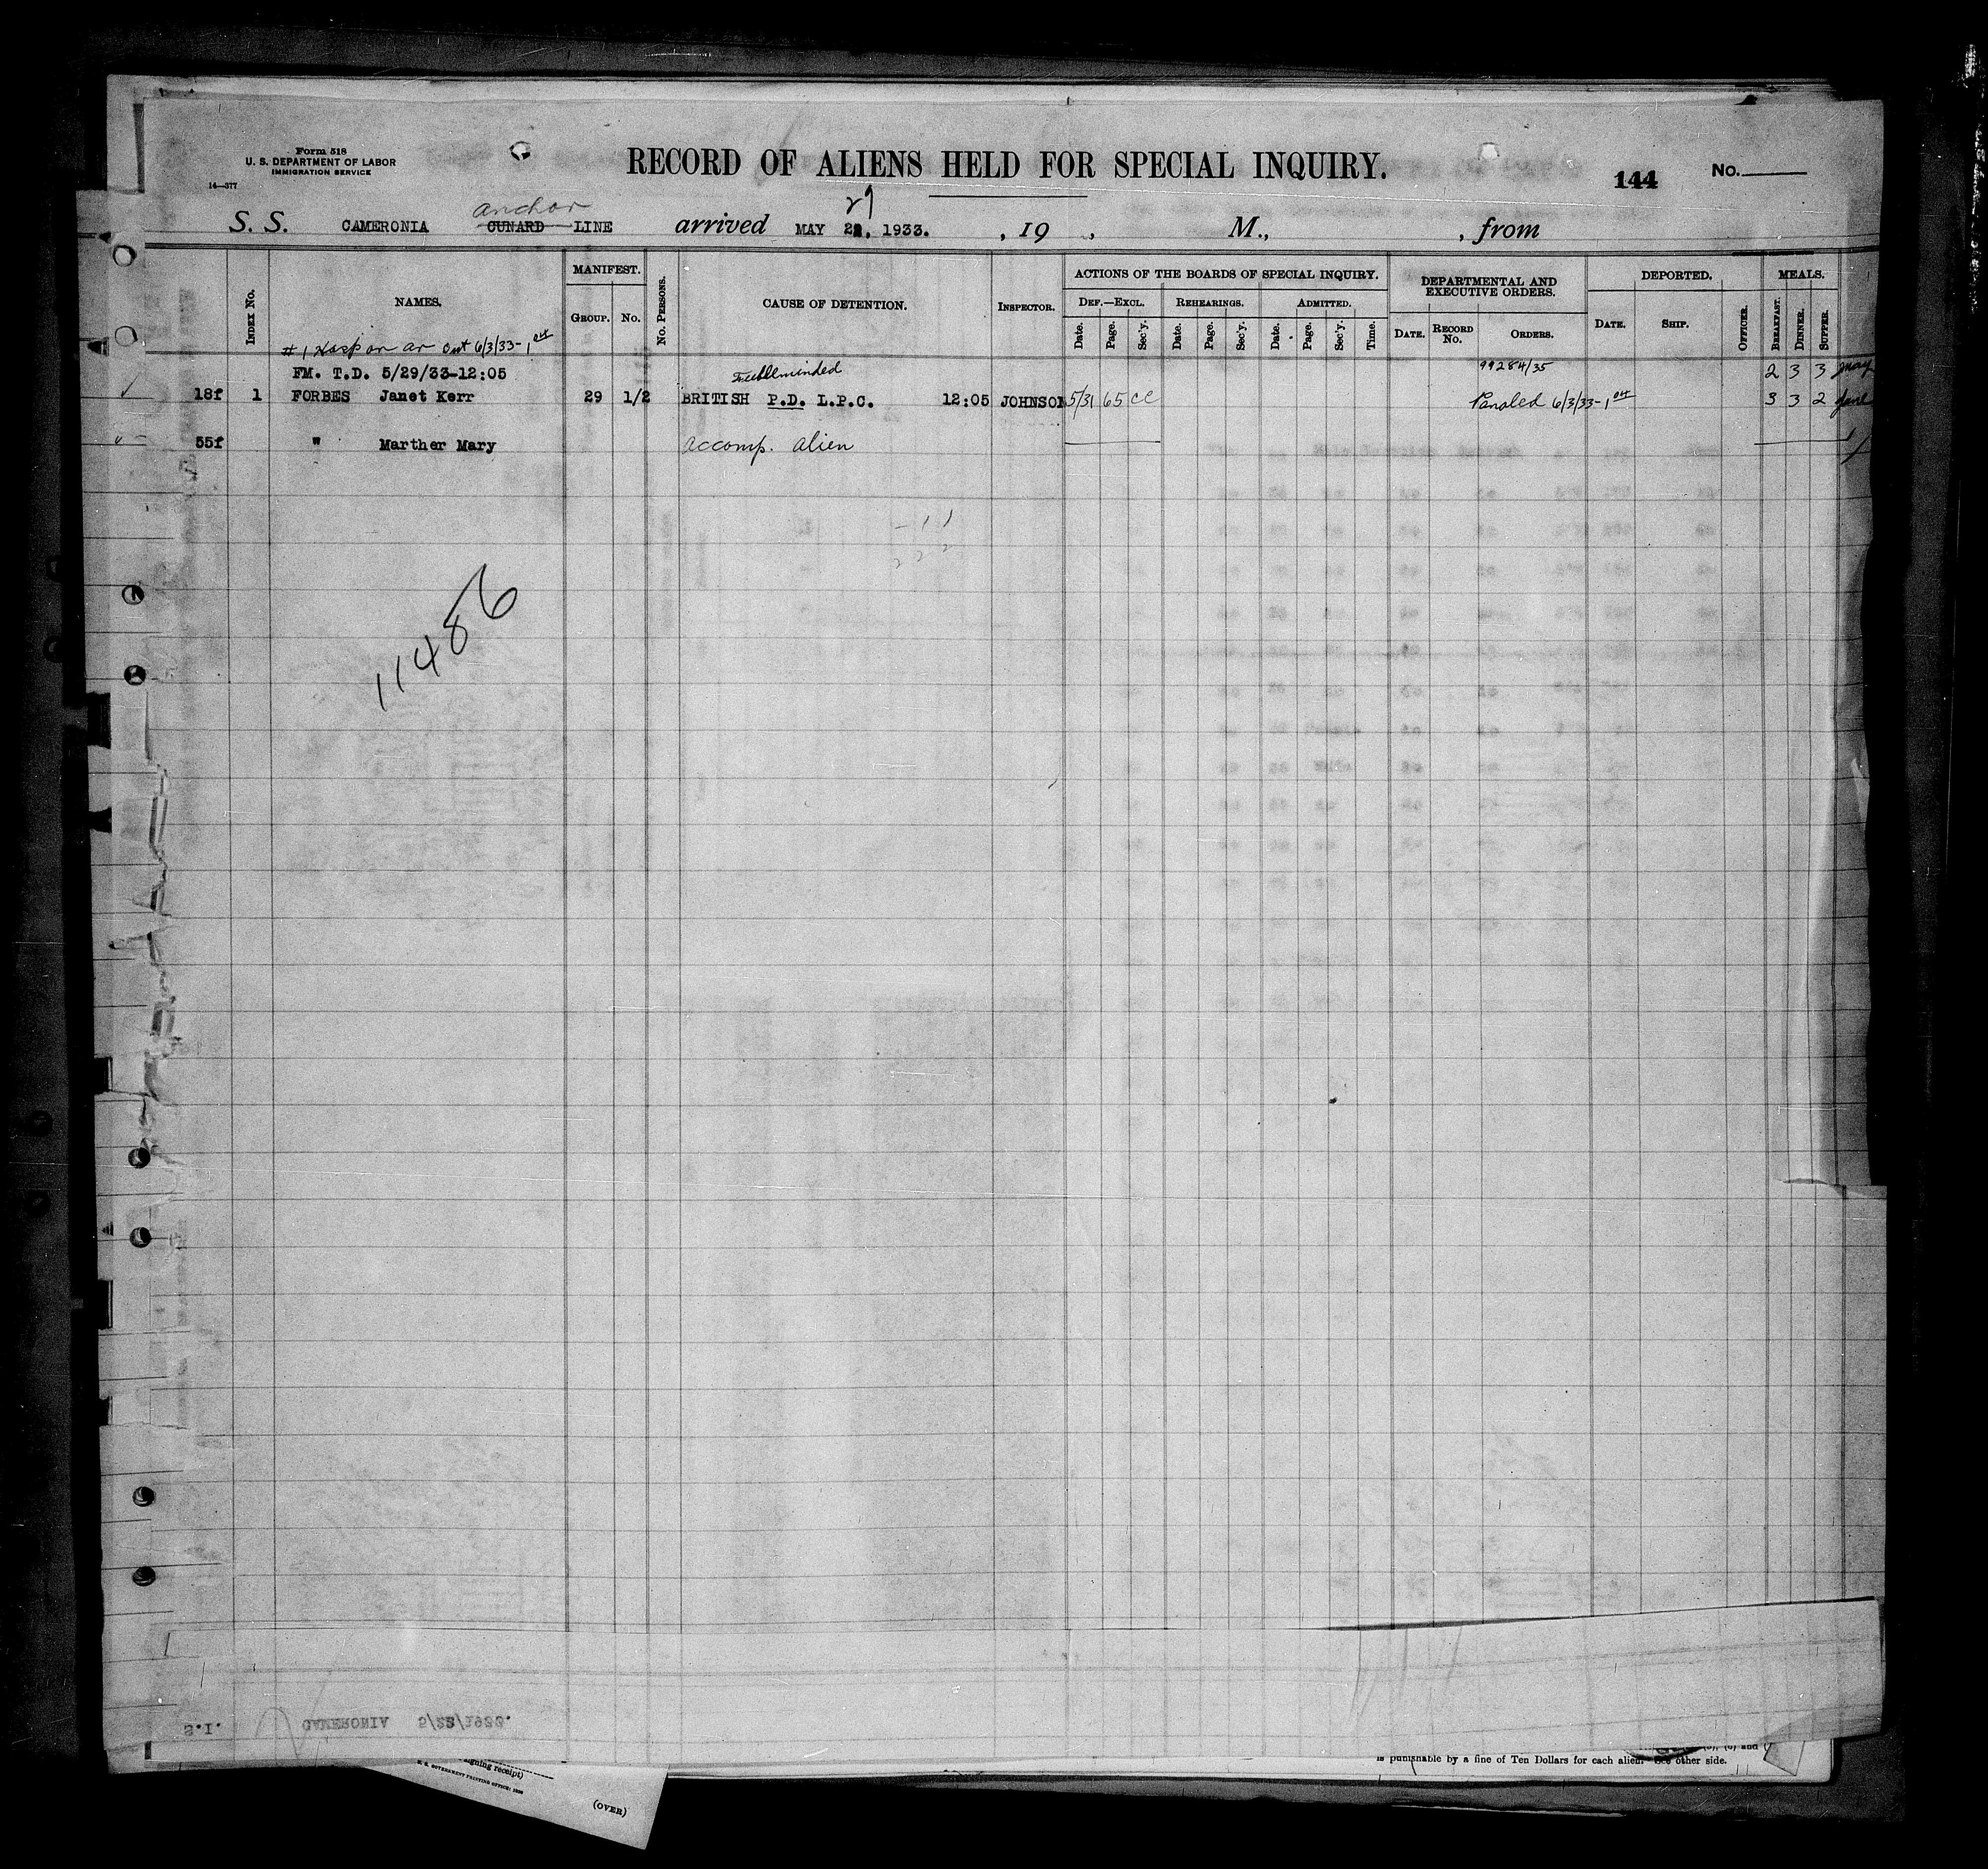 Form 518
U. S. DEPARTMENT OF LABOR
IMMIGRATION SERVICE
14—377
RECORD OF ALIENS HELD FOR SPECIAL INQUIRY.
144
No.
anchor
29
S. S. CAMERONIA CUNARD LINE arrived MAY 22, 1933. , 19 , M., , from
INDEX No.
NAMES.
MANIFEST.
GROUP. No.
No. PERSONS.
CAUSE OF DETENTION.
INSPECTOR.
ACTIONS OF THE BOARDS OF SPECIAL INQUIRY.
DEF.—EXCL. REHEARINGS. ADMITTED.
Date. Page. Sec'y. Date. Page. Sec'y. Date. Page. Sec'y. Time.
DEPARTMENTAL AND
EXECUTIVE ORDERS.
DATE. RECORD No. ORDERS.
DEPORTED.
DATE. SHIP. OFFICER.
MEALS.
BREAKFAST. DINNER. SUPPER.
#1 Hosp on ar out 6/3/33-1
FM. T.D. 5/29/33-12:05 Feebleminded 99284/35 2 3 3 May
18f 1 FORBES Janet Kerr 29 1/2 BRITISH P.D. L.P.C. 12:05 JOHNSON 5/31 65 CC Paroled 6/3/33-1 3 3 2 June
55f " Marther Mary accomp. alien
11486
S.I. CAMERONIA
signing receipt)
U. S. GOVERNMENT PRINTING OFFICE
(OVER)
is punishable by a fine of Ten Dollars for each alien. See other side.